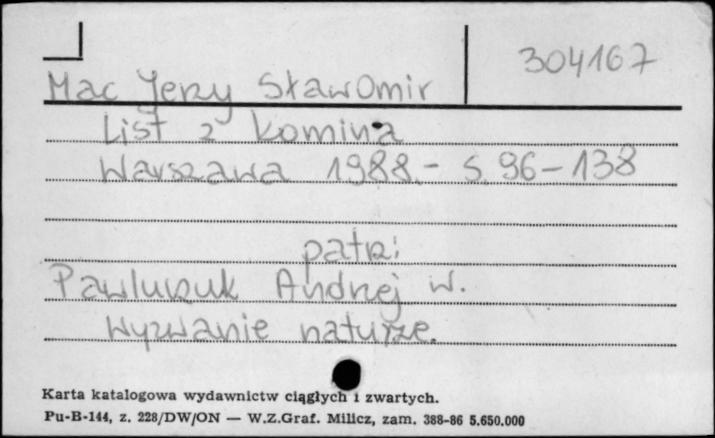 304167
Mac Jerzy Sławomir
List z komina
Warszawa 1988.- s. 96-138
patrz:
Pawluczuk Andrzej W.
Wyzwanie naturze.
Karta katalogowa wydawnictw ciągłych i zwartych.
Pu-B-144, z. 228/DW/ON — W.Z.Graf. Milicz, zam. 388-86 5.650.000